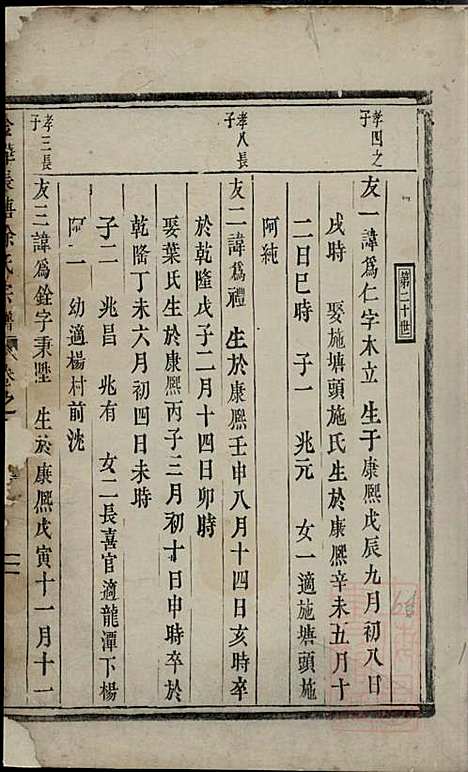 第二十世
孝四之子
友一諱爲仁字木立 生于康熙戊辰九月初八日
戌時 娶施塘頭施氏生於康熙辛未五月十
二日巳時 子一 兆元 女一適施塘頭施
阿純
孝八長子
友二諱爲禮 生於康熙壬申八月十四日亥時卒
於乾隆戊子二月十四日卯時
娶葉氏生於康熙丙子三月初十日申時卒於
乾隆丁未六月初四日未時
子二 兆昌 兆有 女二長喜官適龍潭下楊
阿二 幼適楊村前沈
孝三長子
友三諱爲銓字秉陞 生於康熙戊寅十一月十一
徐氏宗譜